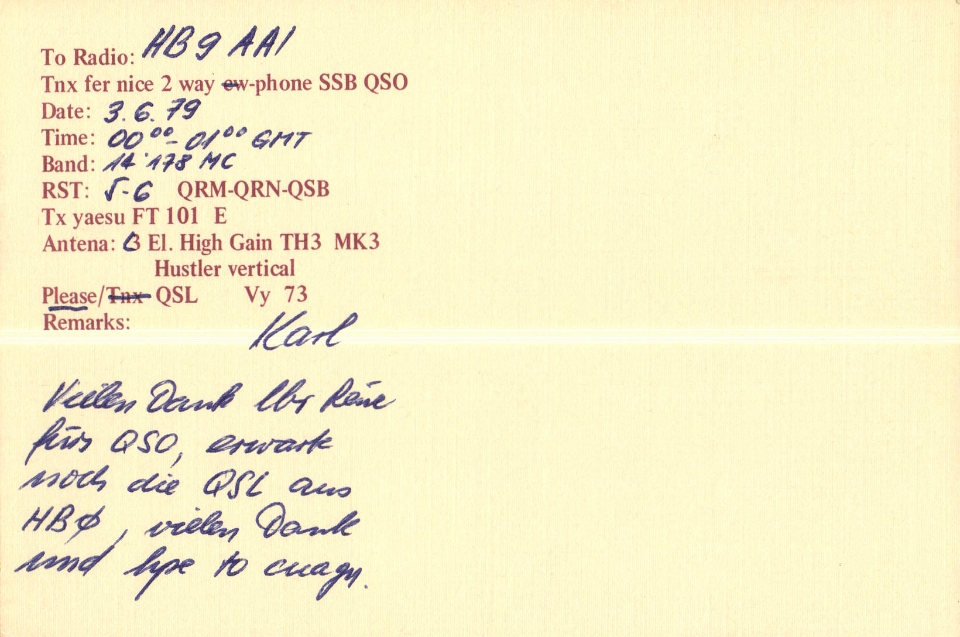 To Radio: HB9AAI
Tnx fer nice 2 way cw-phone SSB QSO
Date: 3.6.79
Time: 00⁰⁰-01⁰⁰ GMT
Band: 14'178 MC
RST: 5-6 QRM-QRN-QSB
Tx yaesu FT 101 E
Antena: 3 El. High Gain TH3 MK3
Hustler vertical
Please/Tnx QSL Vy 73
Remarks:
Karl
Vielen Dank lbr Rene
fürs QSO, erwarte
noch die QSL aus
HBØ, vielen Dank
und hpe to cuagn.